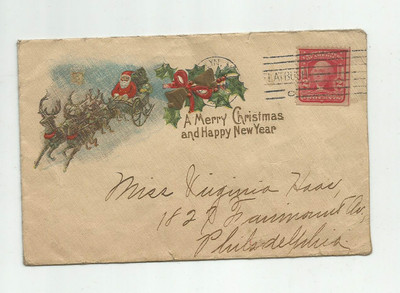 A Merry Christmas
and Happy New Year
Miss Virginia Haas,
182 Fairmount Av,
Philadelphia